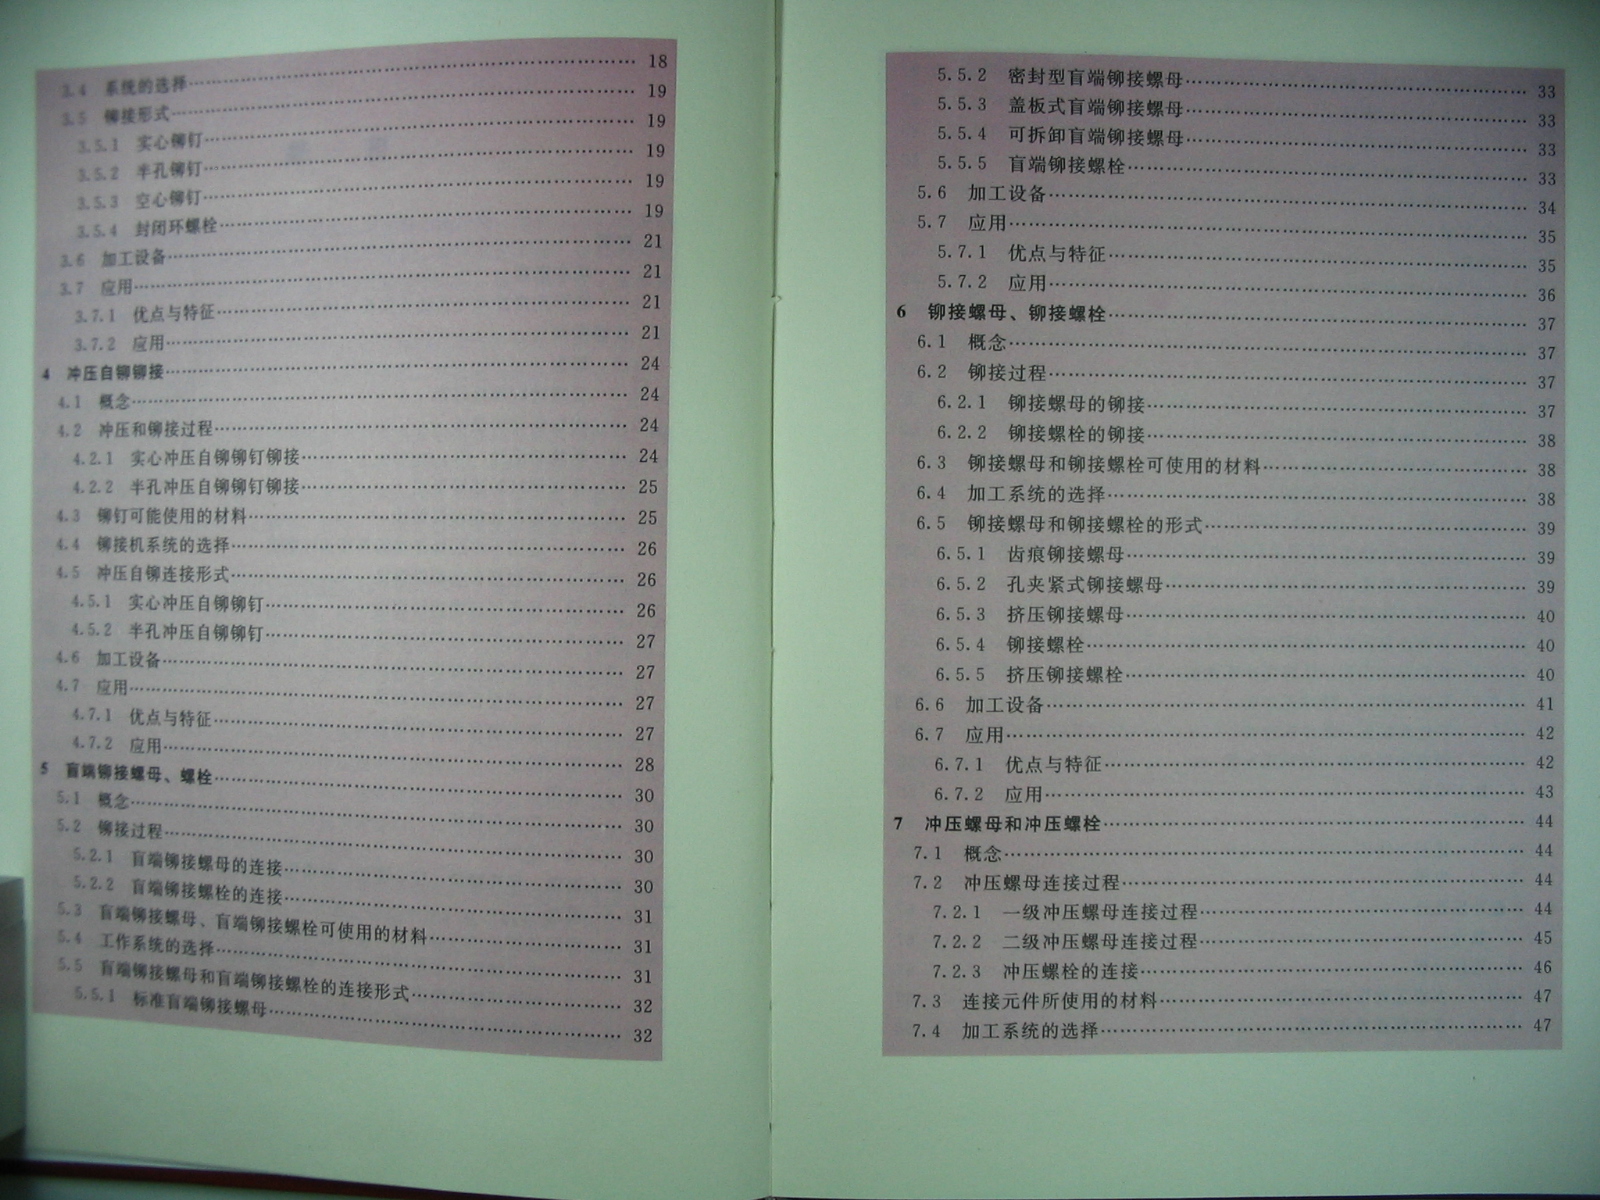 3.4 系统的选择……18
3.5 铆接形式……19
3.5.1 实心铆钉……19
3.5.2 半孔铆钉……19
3.5.3 空心铆钉……19
3.5.4 封闭环螺栓……19
3.6 加工设备……21
3.7 应用……21
3.7.1 优点与特征……21
3.7.2 应用……21
4 冲压自铆铆接……24
4.1 概念……24
4.2 冲压和铆接过程……24
4.2.1 实心冲压自铆铆钉铆接……24
4.2.2 半孔冲压自铆铆钉铆接……25
4.3 铆钉可能使用的材料……25
4.4 铆接机系统的选择……26
4.5 冲压自铆连接形式……26
4.5.1 实心冲压自铆铆钉……26
4.5.2 半孔冲压自铆铆钉……27
4.6 加工设备……27
4.7 应用……27
4.7.1 优点与特征……27
4.7.2 应用……28
5 盲端铆接螺母、螺栓……30
5.1 概念……30
5.2 铆接过程……30
5.2.1 盲端铆接螺母的连接……30
5.2.2 盲端铆接螺栓的连接……31
5.3 盲端铆接螺母、盲端铆接螺栓可使用的材料……31
5.4 工作系统的选择……31
5.5 盲端铆接螺母和盲端铆接螺栓的连接形式……32
5.5.1 标准盲端铆接螺母……32
5.5.2 密封型盲端铆接螺母……33
5.5.3 盖板式盲端铆接螺母……33
5.5.4 可拆卸盲端铆接螺母……33
5.5.5 盲端铆接螺栓……33
5.6 加工设备……34
5.7 应用……35
5.7.1 优点与特征……35
5.7.2 应用……36
6 铆接螺母、铆接螺栓……37
6.1 概念……37
6.2 铆接过程……37
6.2.1 铆接螺母的铆接……37
6.2.2 铆接螺栓的铆接……38
6.3 铆接螺母和铆接螺栓可使用的材料……38
6.4 加工系统的选择……38
6.5 铆接螺母和铆接螺栓的形式……39
6.5.1 齿痕铆接螺母……39
6.5.2 孔夹紧式铆接螺母……39
6.5.3 挤压铆接螺母……40
6.5.4 铆接螺栓……40
6.5.5 挤压铆接螺栓……40
6.6 加工设备……41
6.7 应用……42
6.7.1 优点与特征……42
6.7.2 应用……43
7 冲压螺母和冲压螺栓……44
7.1 概念……44
7.2 冲压螺母连接过程……44
7.2.1 一级冲压螺母连接过程……44
7.2.2 二级冲压螺母连接过程……45
7.2.3 冲压螺栓的连接……46
7.3 连接元件所使用的材料……47
7.4 加工系统的选择……47